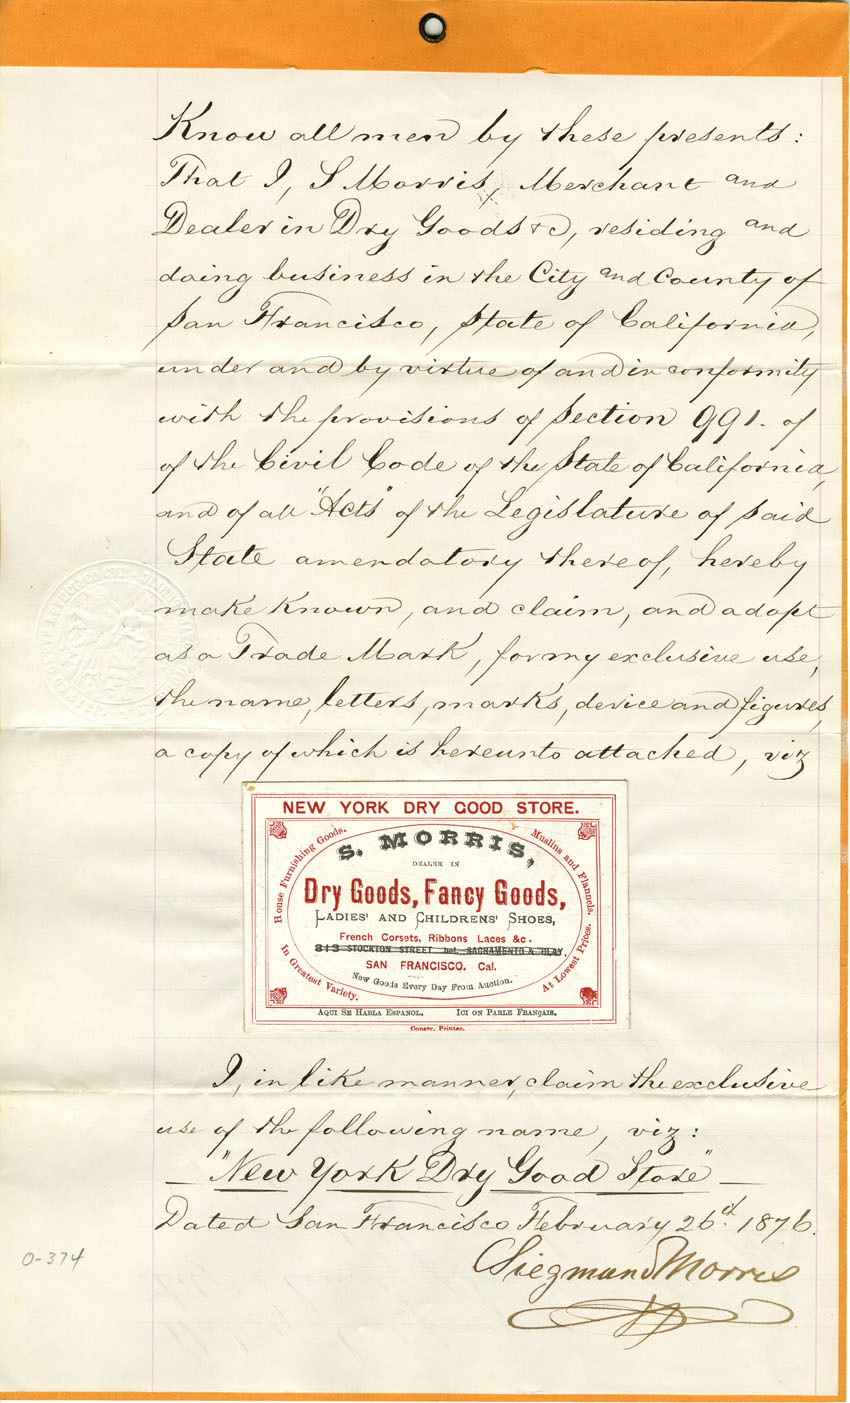 Know all men by these presents:
That I, S Morris, Merchant and
Dealer in Dry Goods &c, residing and
doing business in the City and County of
San Francisco, State of California,
under and by virtue of and in conformity
with the provisions of Section 991. of
of the Civil Code of the State of California,
and of all "Acts" of the Legislature of said
State amendatory thereof, hereby
make known, and claim, and adopt
as a Trade Mark, for my exclusive use,
the name, letters, marks, device and figures,
a copy of which is hereunto attached, viz
NEW YORK DRY GOOD STORE.
House Furnishing Goods.
Muslins and Flannels.
S. MORRIS,
DEALER IN
Dry Goods, Fancy Goods,
LADIES' AND CHILDRENS' SHOES,
French Corsets, Ribbons Laces &c.
813 STOCKTON STREET bet. SACRAMENTO & CLAY.
SAN FRANCISCO. Cal.
New Goods Every Day From Auction.
In Greatest Variety.
At Lowest Prices.
AQUI SE HABLA ESPANOL. ICI ON PARLE FRANÇAIS.
Conser. Printer.
I, in like manner, claim the exclusive
use of the following name, viz:
— "New York Dry Good Store" —
Dated San Francisco February 26th. 1876.
Siegmund Morris
0-374